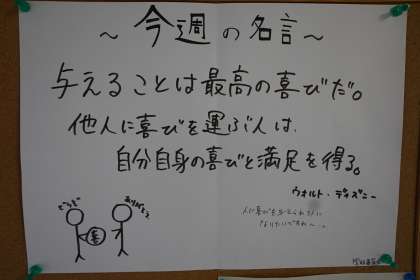 ～今週の名言～
与えることは最高の喜びだ。
他人に喜びを運ぶ人は、
自分自身の喜びと満足を得る。
ウォルト・ディズニー
人に喜びを与えられる人に
なりたいですね～。
どうぞ
ありがとう
喜